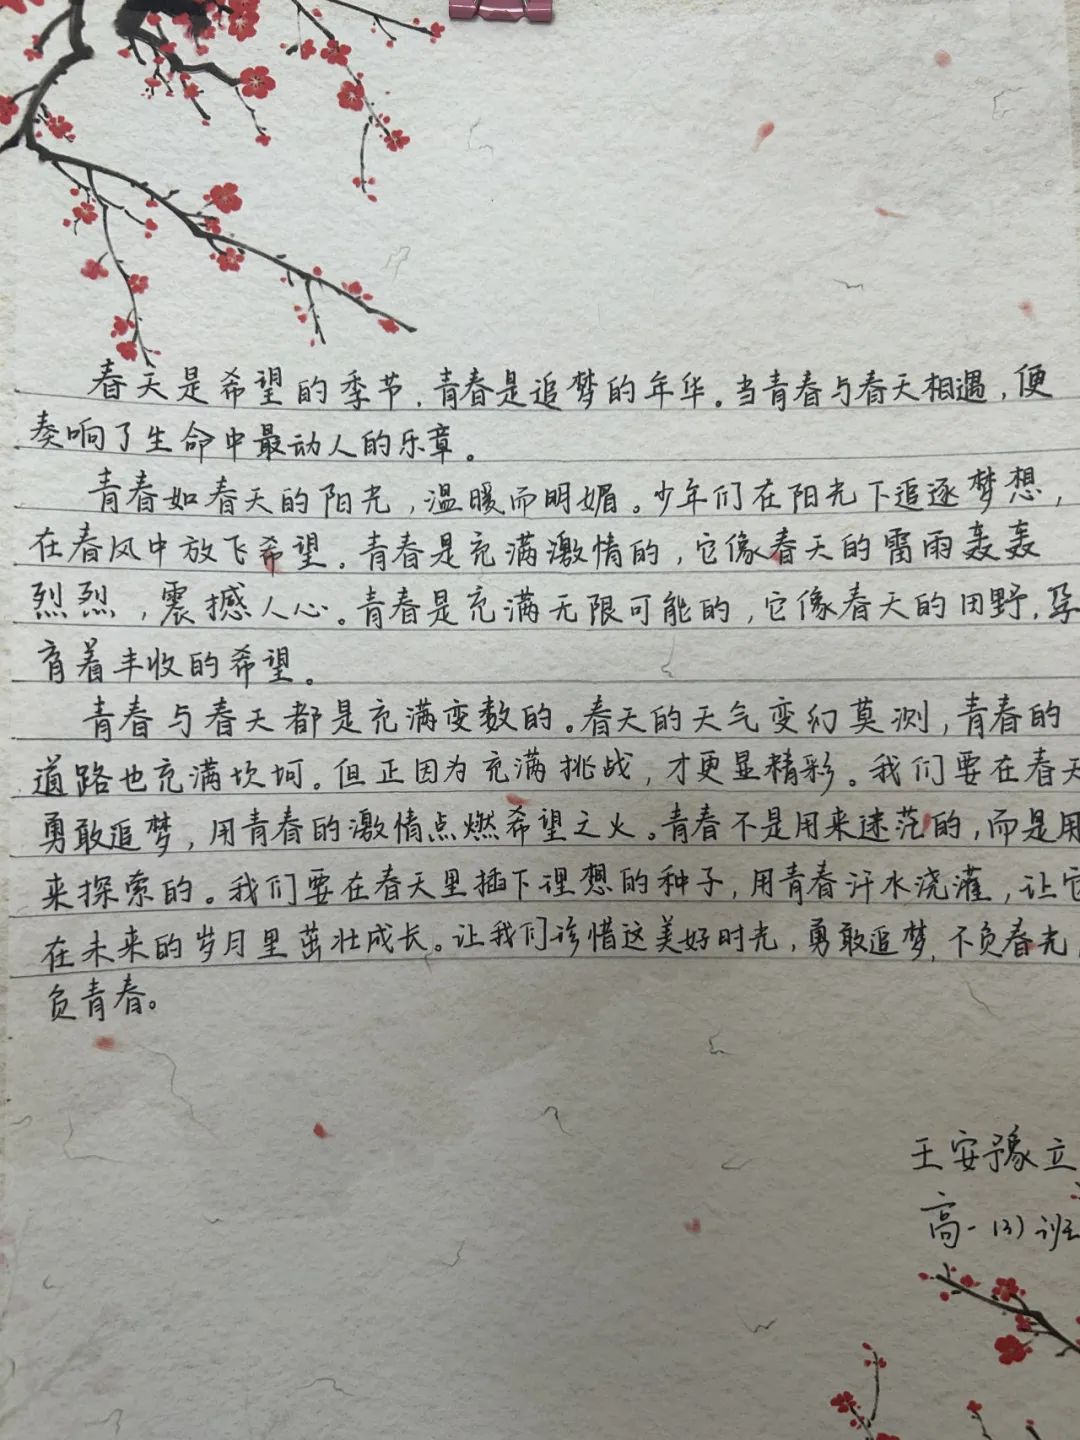 春天是希望的季节，青春是追梦的年华。当青春与春天相遇，便
奏响了生命中最动人的乐章。
青春如春天的阳光，温暖而明媚。少年们在阳光下追逐梦想，
在春风中放飞希望。青春是充满激情的，它像春天的雷雨轰轰
烈烈，震撼人心。青春是充满无限可能的，它像春天的田野，孕
育着丰收的希望。
青春与春天都是充满变数的。春天的天气变幻莫测，青春的
道路也充满坎坷。但正因为充满挑战，才更显精彩。我们要在春天
勇敢追梦，用青春的激情点燃希望之火。青春不是用来迷茫的，而是用
来探索的。我们要在春天里插下理想的种子，用青春汗水浇灌，让它
在未来的岁月里茁壮成长。让我们珍惜这美好时光，勇敢追梦，不负春光，
负青春。
王安豫立
高一(3)班